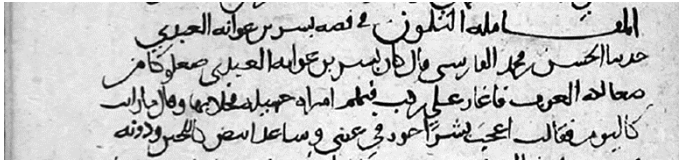 المقامه الثلثون في قصه بشر بن عوانه العبدي
حدثنا الحسن بن محمد الفارسي قال كان بشر بن عوانه العبدي صعلوكا من
صعاليك العرب فاغار على ركب فيهم امراه جميله فخلا بها وقال ما رايت
كاليوم فقالت اعجب بشرًا حور في عيني وساعد ابيض كاللجين ودونه